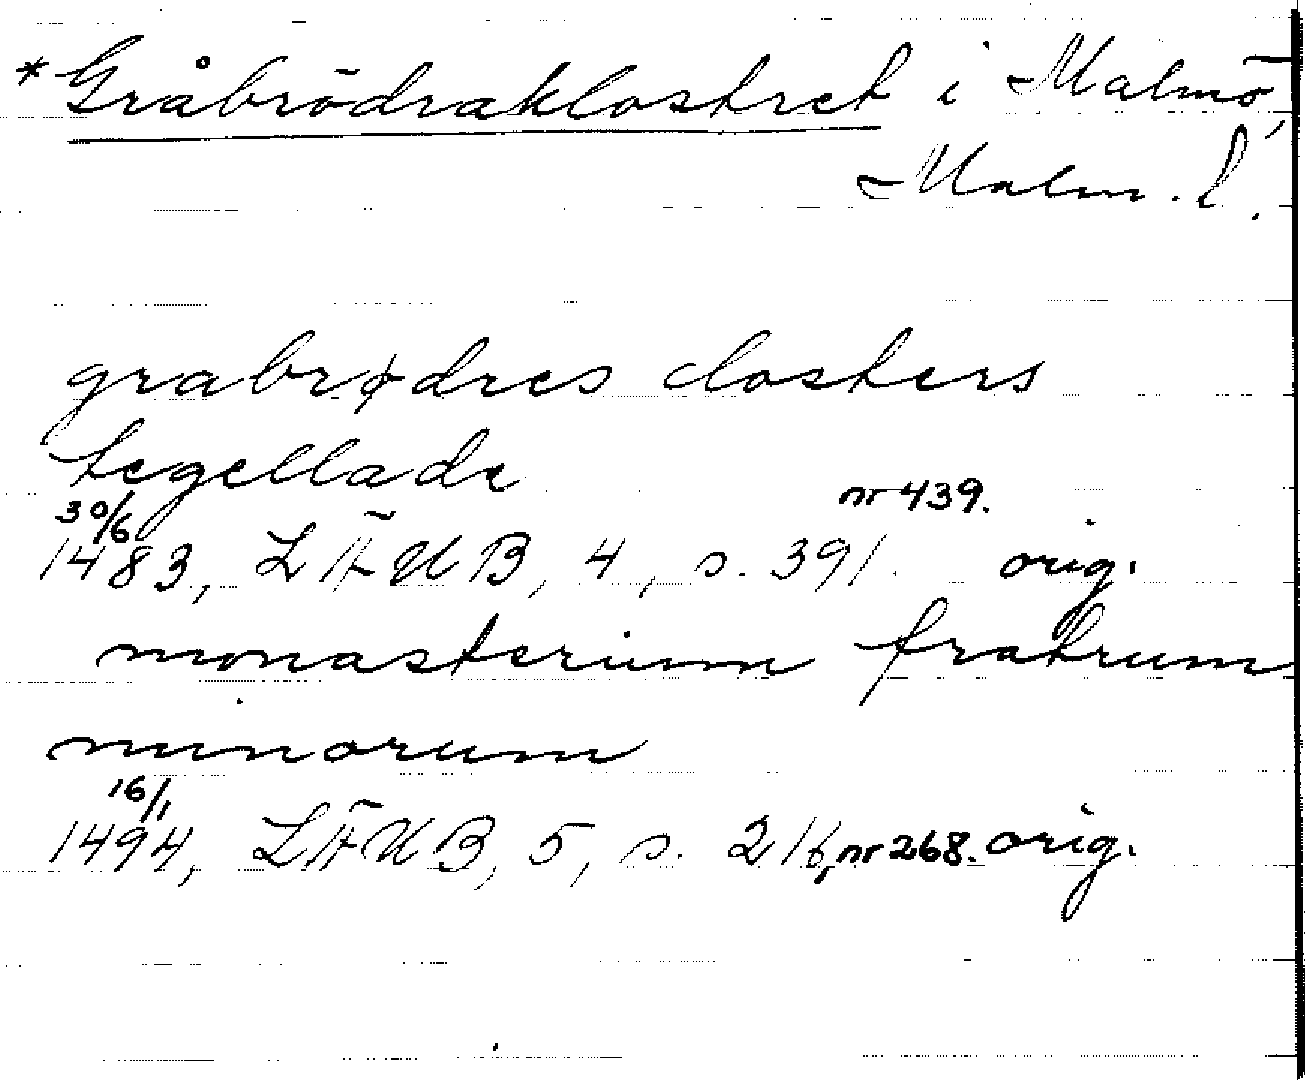 *Gråbrödraklostret i Malmö,
Malm. l.
grabrødres closters
tegellade
30/6 nr 439.
1483, LÄUB, 4, s. 391. orig.
monasterium fratrum
minorum
16/1
1494, LÄUB, 5, s. 216, nr 268. orig.